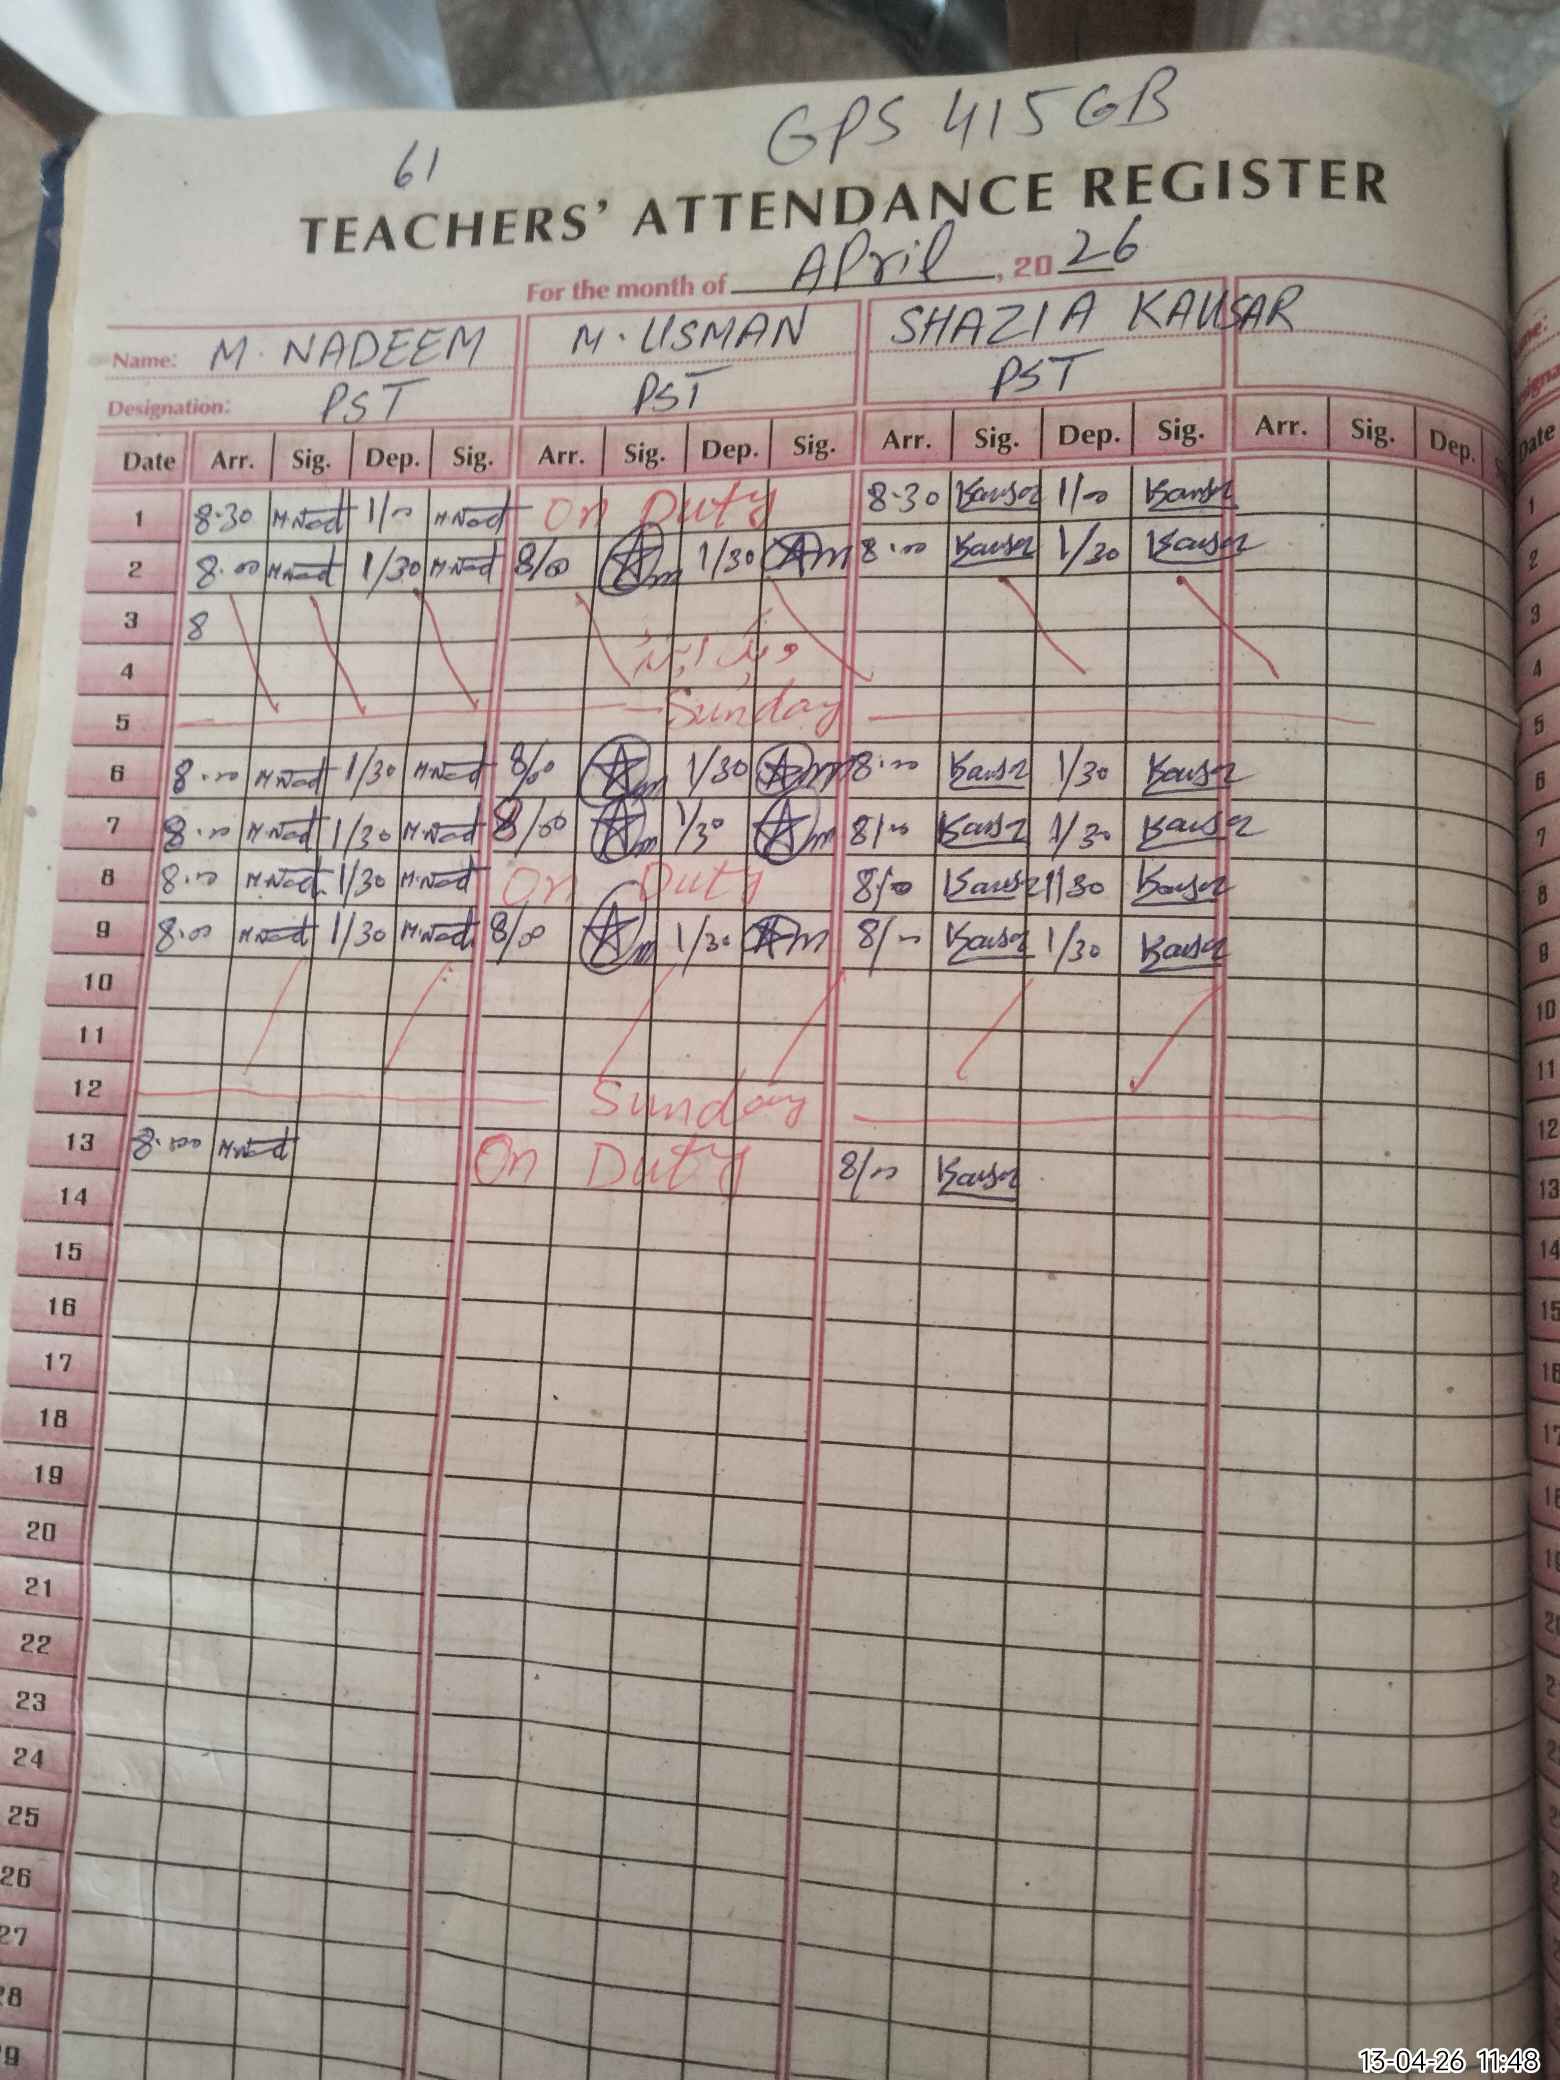 GPS 415 GB
61
TEACHERS' ATTENDANCE REGISTER
For the month of April, 20 26
Name: M. NADEEM M. USMAN SHAZIA KAUSAR
Designation: PST PST PST
Date Arr. Sig. Dep. Sig. Arr. Sig. Dep. Sig. Arr. Sig. Dep. Sig. Arr. Sig. Dep.
1 8.30 M.Nad 1/00 M.Nad On Duty 8.30 Kausar 1/00 Kausar
2 8.00 M.Nad 1/30 M.Nad 8/00 1/30 8.00 Kausar 1/30 Kausar
3 8
4
5 Sunday
6 8.00 M.Nad 1/30 M.Nad 8/00 1/30 8.00 Kausar 1/30 Kausar
7 8.00 M.Nad 1/30 M.Nad 8/00 1/30 8/00 Kausar 1/30 Kausar
8 8.00 M.Nad 1/30 M.Nad On Duty 8/00 Kausar 1/30 Kausar
9 8.00 M.Nad 1/30 M.Nad 8/00 1/30 8/00 Kausar 1/30 Kausar
10
11
12 Sunday
13 8.00 M.Nad On Duty 8/00 Kausar
14
15
16
17
18
19
20
21
22
23
24
25
26
27
28
29
Date
1
2
3
4
5
6
7
8
9
10
11
12
13
14
15
13-04-26 11:48